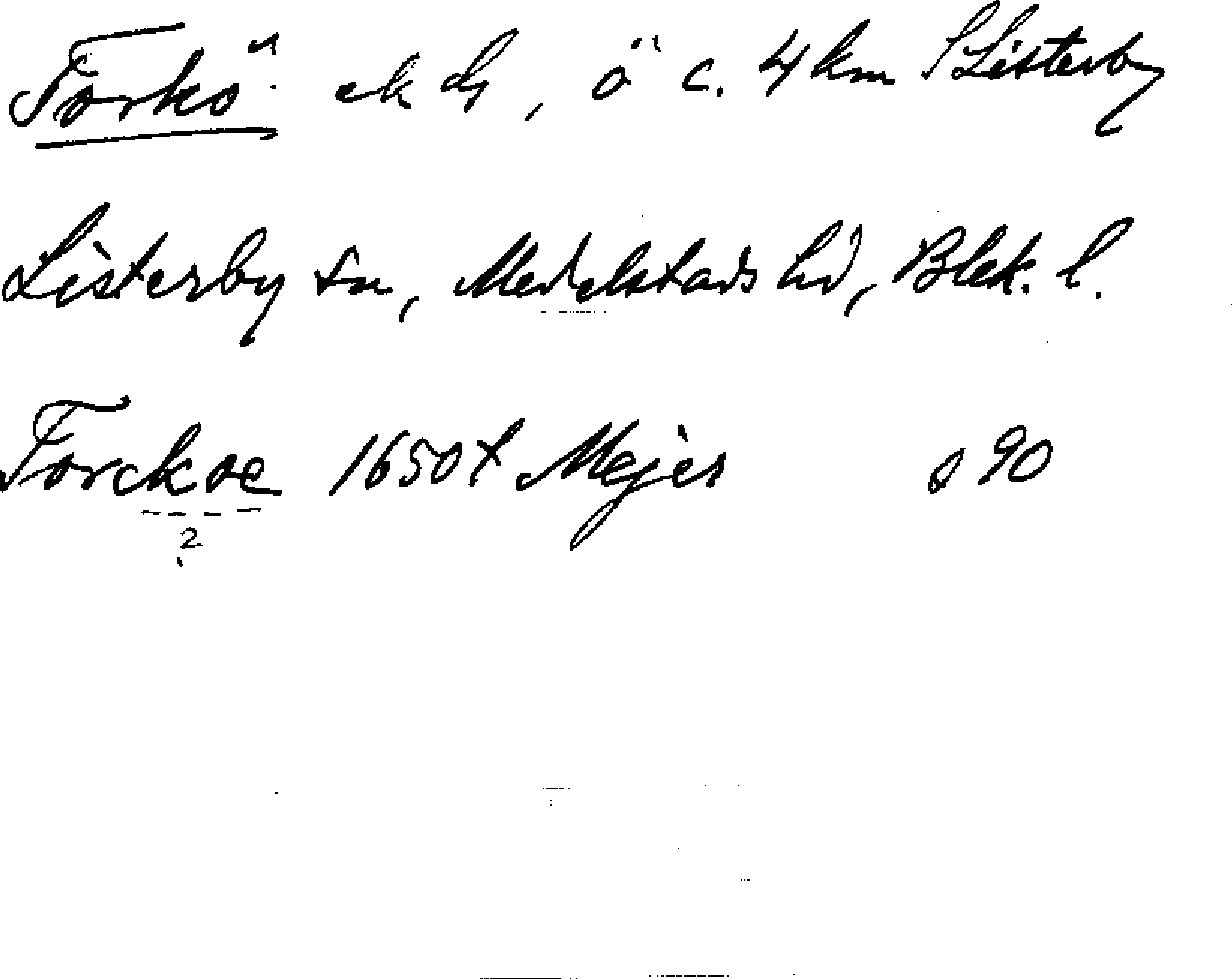 Torkö ek dg, ö c. 4 km S Listerby
Listerby sn, Medelstads hd, Blek. l.
Torckoe 1650t Mejer s 90
2